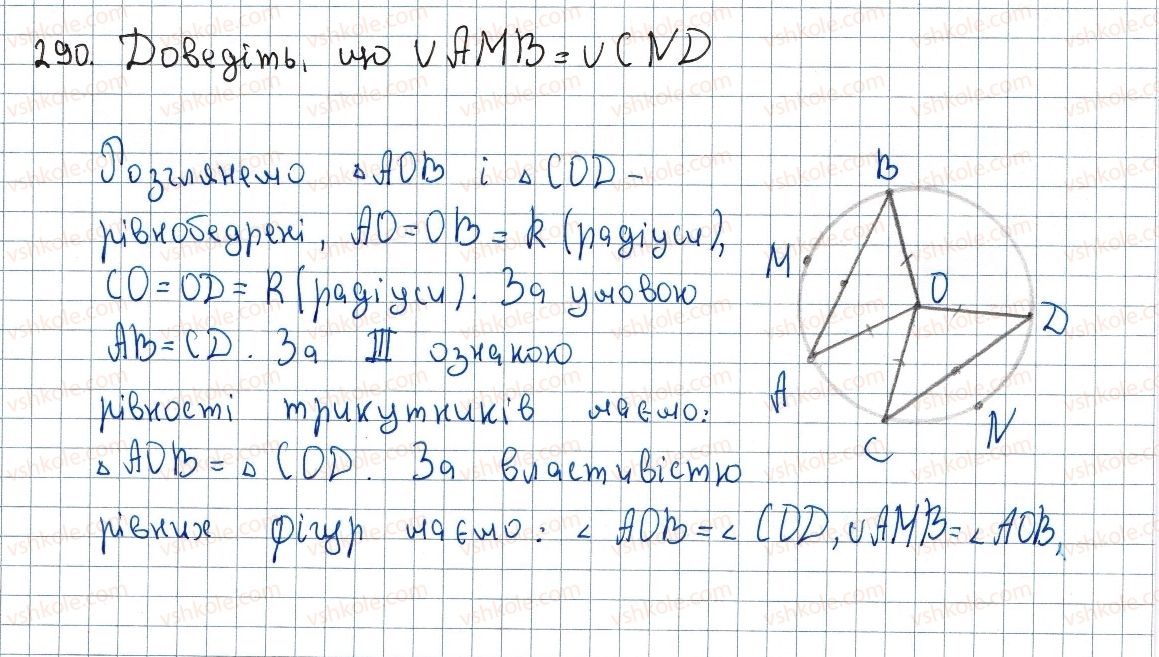 290. Доведіть, що ∪AMB = ∪CND
Розглянемо △AOB і △COD –
рівнобедрені, AO = OB = R (радіуси),
CO = OD = R (радіуси). За умовою
AB = CD. За III ознакою
рівності трикутників маємо:
△AOB = △COD. За властивістю
рівних фігур маємо: ∠AOB = ∠COD, ∪AMB = ∠AOB,
B
M
O
D
A
N
C
vshkole.com